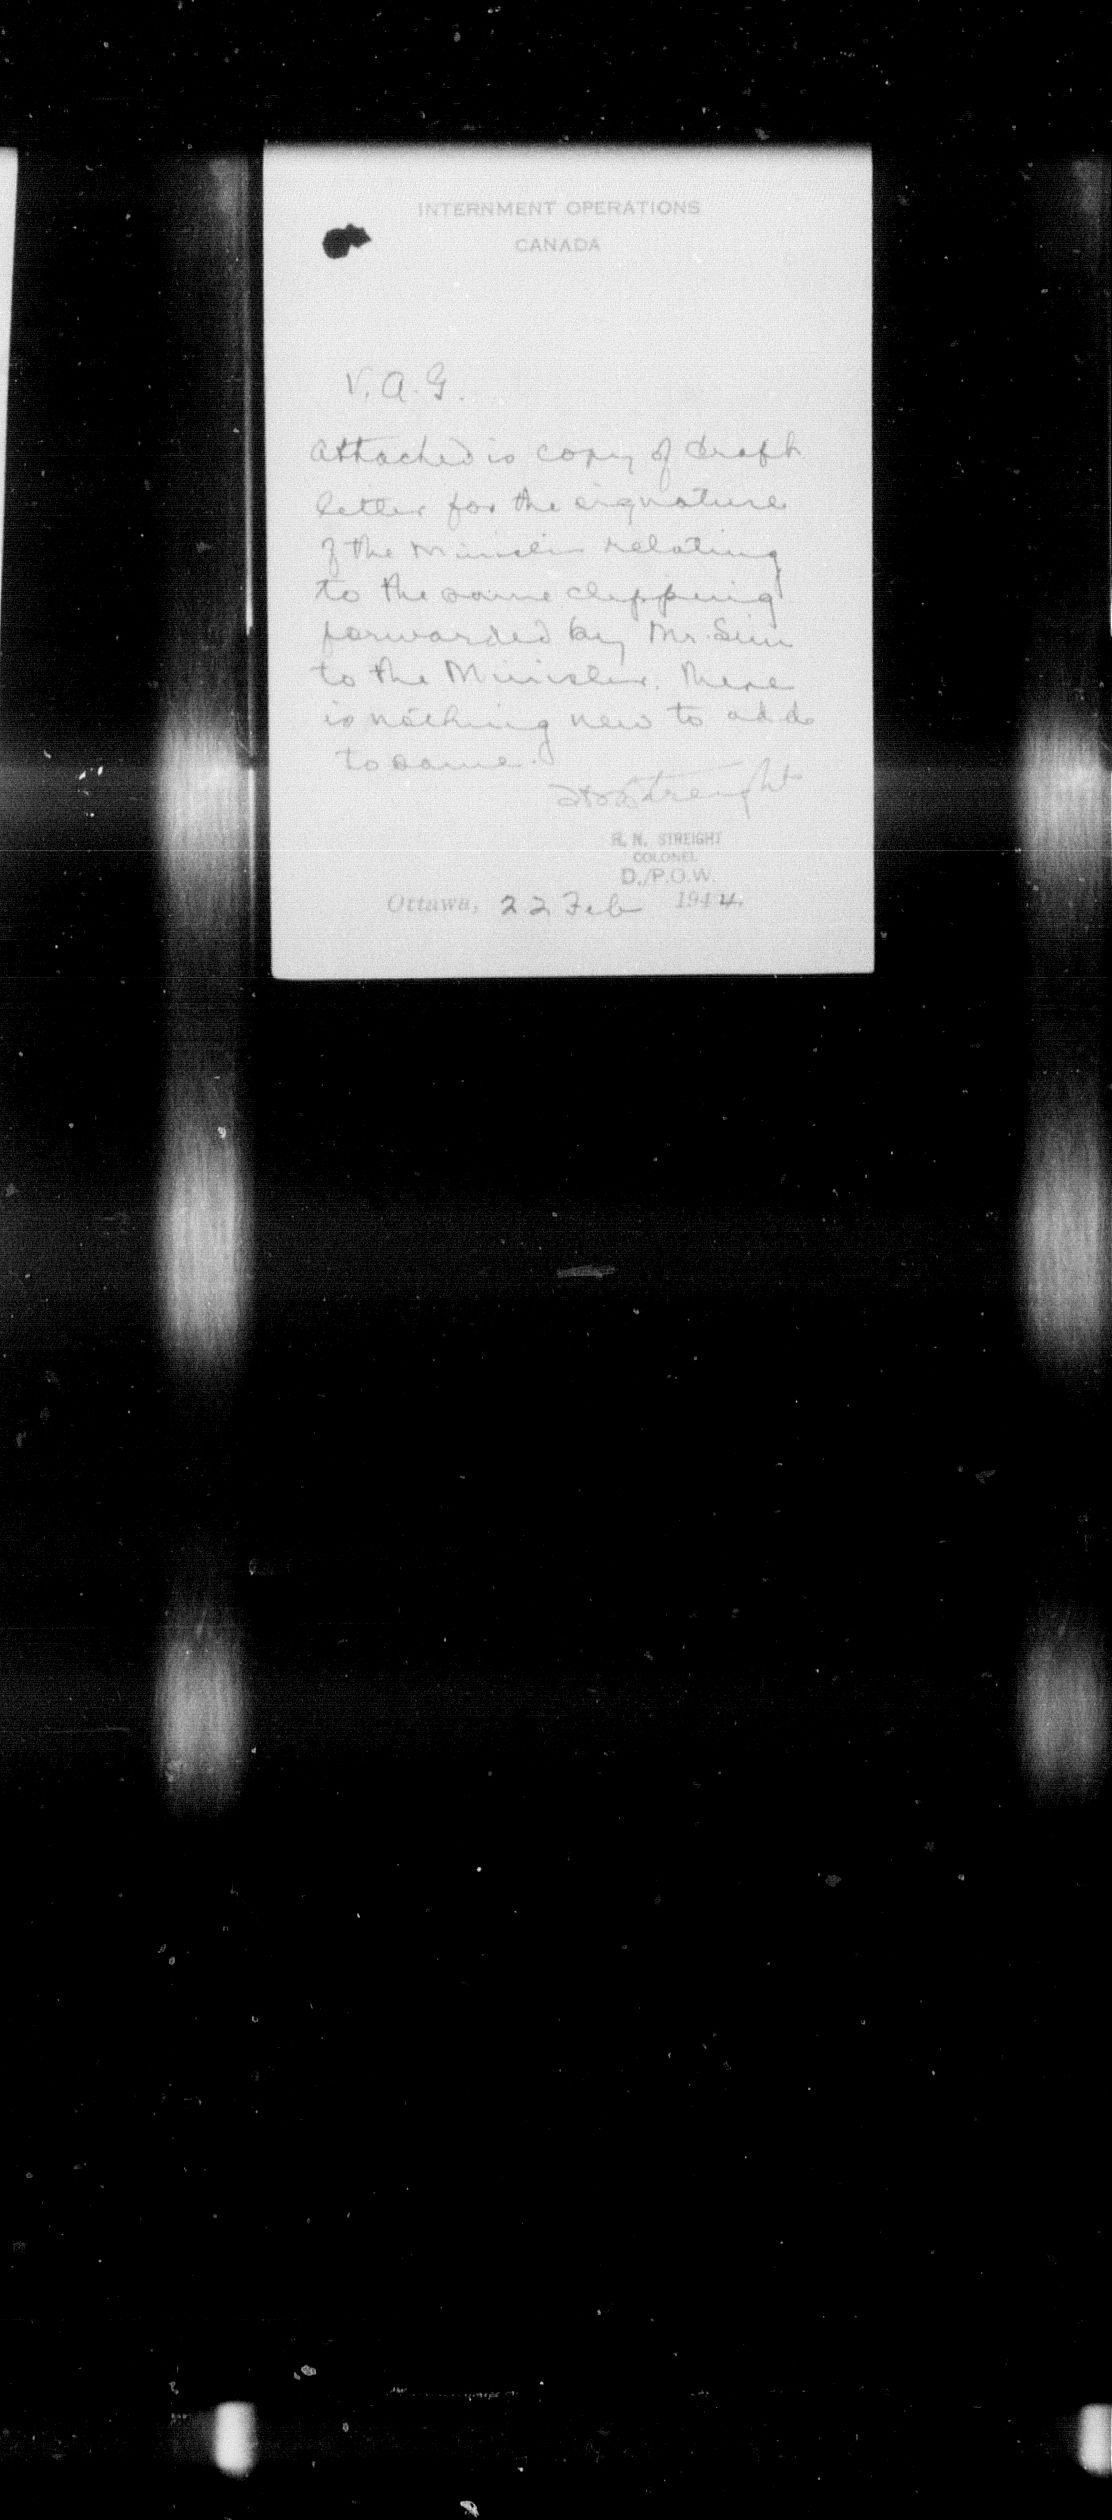 INTERNMENT OPERATIONS
CANADA
V. A. G.
Attached is copy of draft
letter for the signature
of the Minister relating
to the same clipping
forwarded by Mr. Sim
to the Minister. There
is nothing new to add
to same.
Streight
H. N. STREIGHT
COLONEL
D./P.O.W.
Ottawa, 22 Feb 1944.